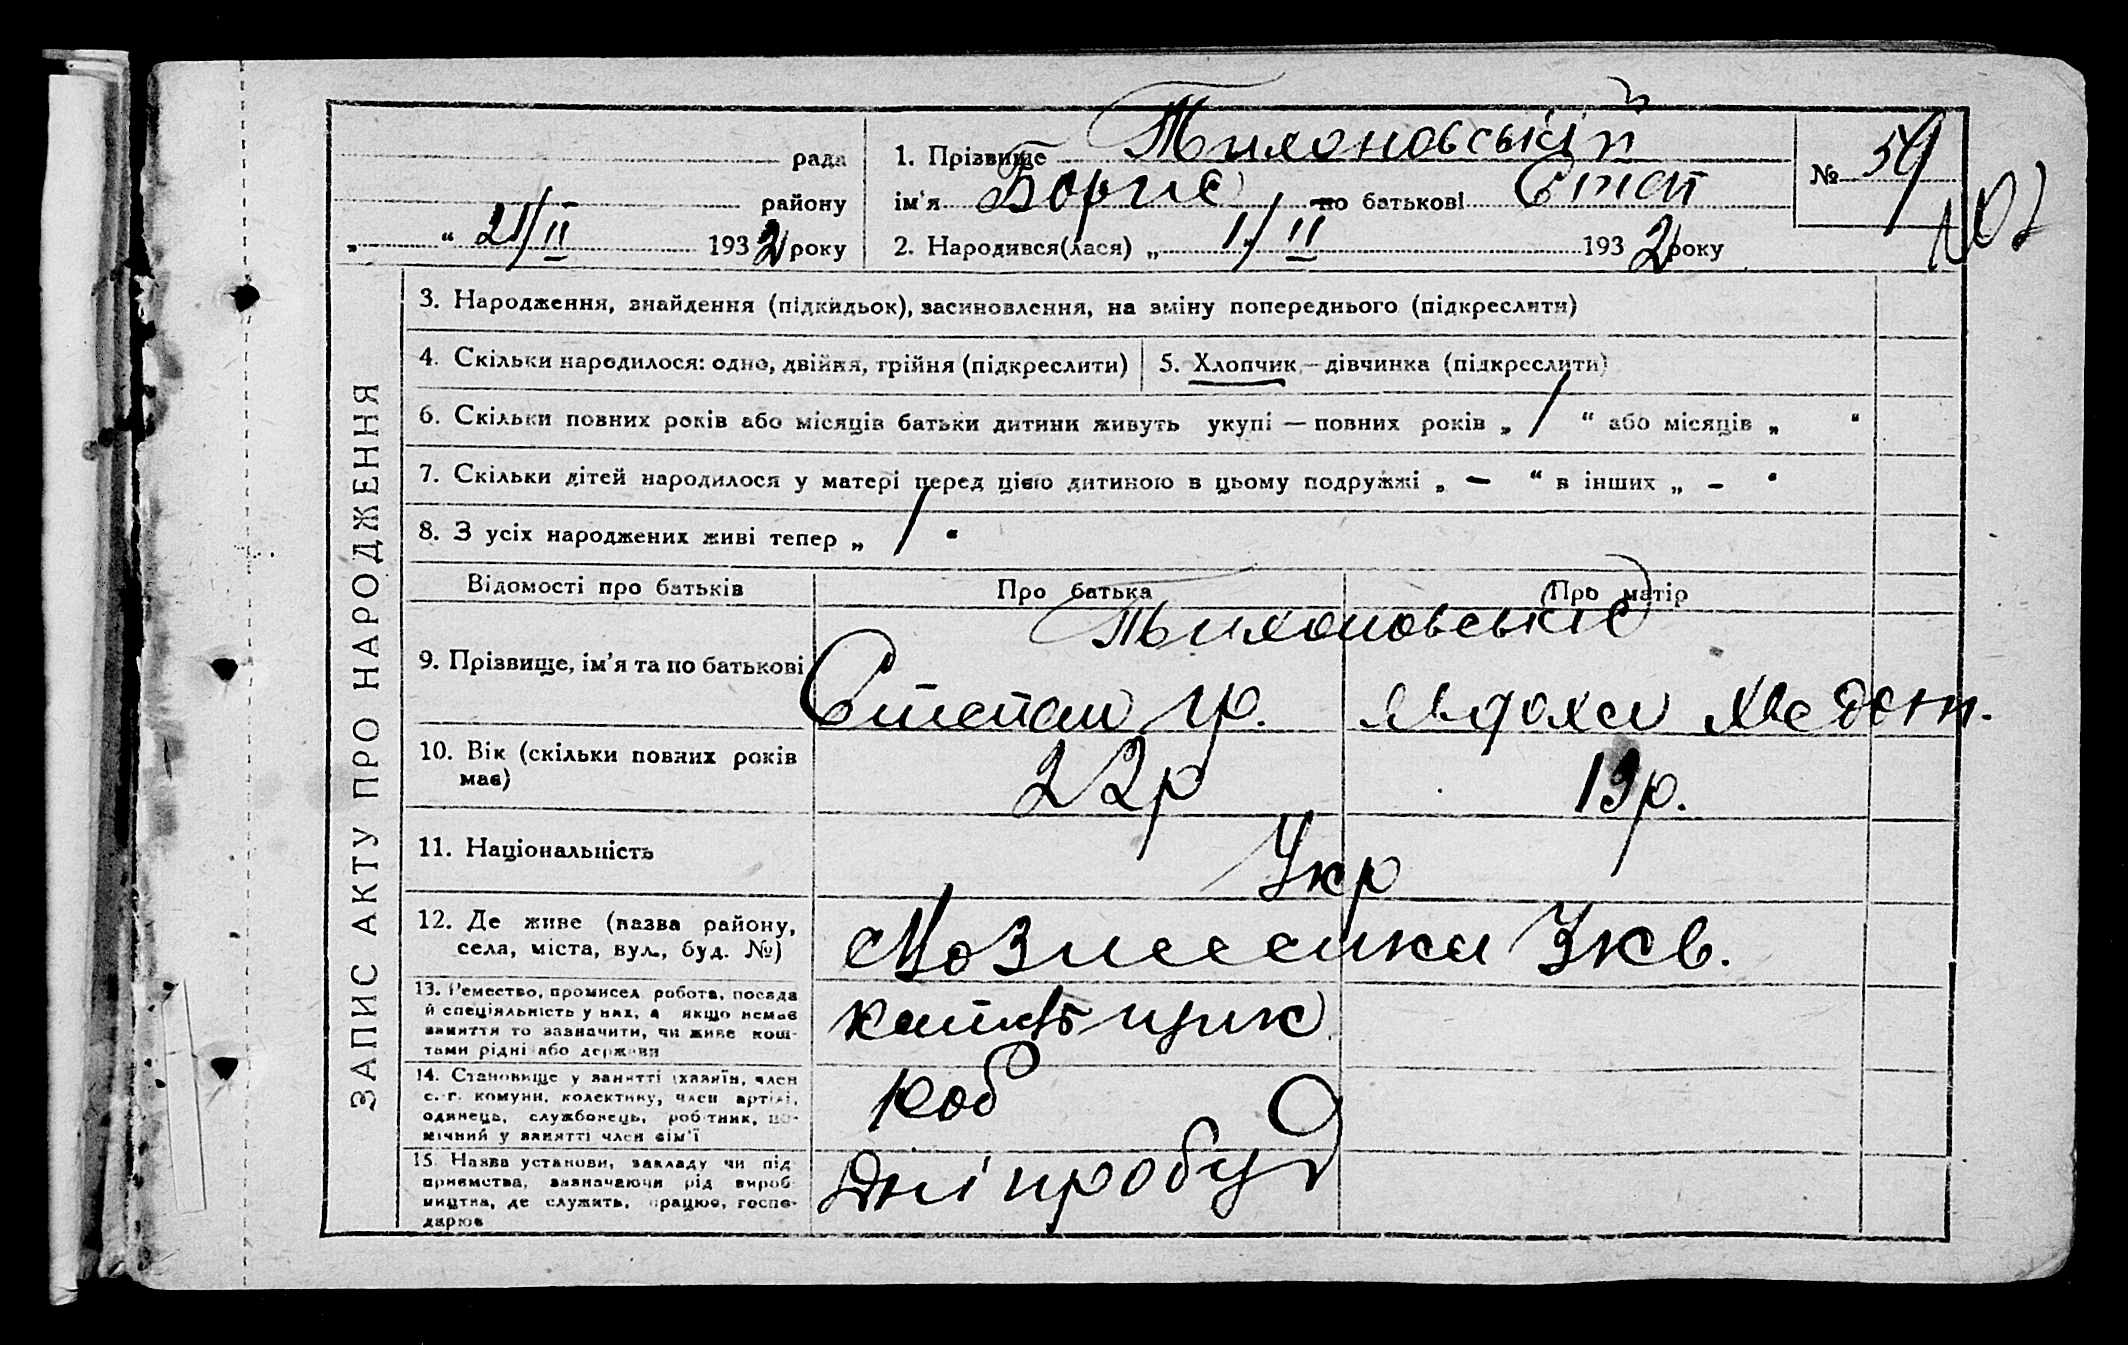 ЗАПИС АКТУ ПРО НАРОДЖЕННЯ
рада
району
„ “ 21/II 1932 року
1. Прізвище Тихоновській
ім'я Борис по батькові Степ
2. Народився(лася) „ 1/II 1932 року
№ 59
107
3. Народження, знайдення (підкидьок), засиновлення, на зміну попереднього (підкреслити)
4. Скільки народилося: одно, двійня, трійня (підкреслити)
5. Хлопчик,—дівчинка (підкреслити)
6. Скільки повних років або місяців батьки дитини живуть укупі — повних років „ 1 “ або місяців „ “
7. Скільки дітей народилося у матері перед цією дитиною в цьому подружжі „ – “ в інших „ – “
8. З усіх народжених живі тепер „ 1 “
Відомості про батьків
Про батька
Про матір
9. Прізвище, ім'я та по батькові
Тихоновські
Степан Гр.
Явдоха Хведот.
10. Вік (скільки повних років має)
22р
19р.
11. Національність
Укр
12. Де живе (назва району,
села, міста, вул., буд. №)
Вознесенка Укв.
13. Ремество, промисел робота, посада
й спеціяльність у них, а якщо немає
заняття то зазначити, чи живе кош-
тами рідні або держави
14. Становище у занятті (хазяїн, член
с.-г. комуни, колективу, член артілі,
одинець, службовець, робітник, по-
мічний у занятті член сім'ї
Роб
15. Назва установи, закладу чи під-
приємства, зазначаючи рід вироб-
ництва, де служить, працює, госпо-
дарює
Дніпробуд